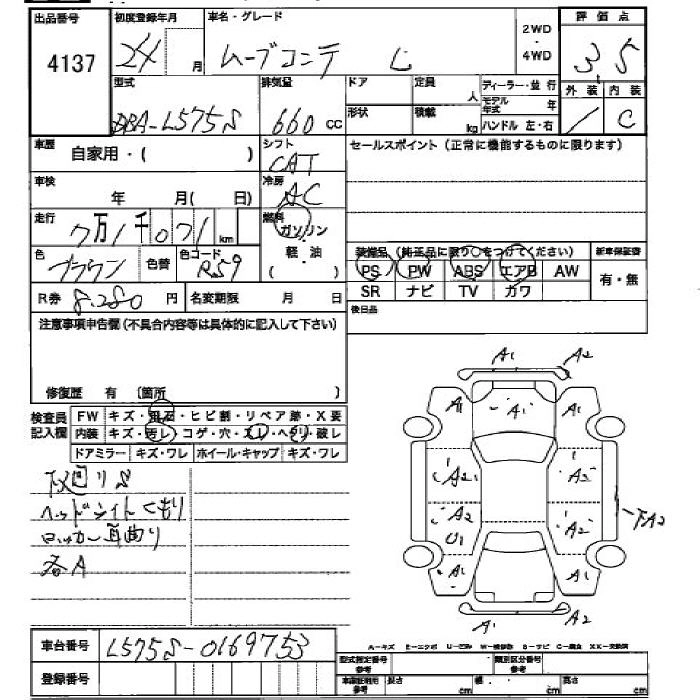 出品番号 初度登録年月 車名・グレード 2WD・4WD 評価点
4137 24 月 ムーブコンテ L 3.5
型式 排気量 ドア 定員 人 ディーラー・並行 外装 内装
DBA-L575S 660 cc 形状 積載 kg モデル年式 年 ハンドル 左・右 / C
車歴 自家用・( ) シフト CAT セールスポイント(正常に機能するものに限ります)
車検 年 月( 日) 冷房 AC
走行 7万1千071km 燃料 ガソリン・軽油( )
色 ブラウン 色替 色コード R59
装備品 (純正品に限り○をつけてください) 新車保証書
PS PW ABS エアB AW 有・無
SR ナビ TV ガワ
R券 8,280 円 名変期限 月 日 後日品
注意事項申告欄(不具合内容等は具体的に記入して下さい)
修復歴 有 〔箇所 〕
検査員記入欄 FW キズ・飛石・ヒビ割・リペア跡・X要
内装 キズ・汚レ・コゲ・穴・スレ・ヘタリ・破レ
ドアミラー キズ・ワレ ホイール・キャップ キズ・ワレ
下廻りS
ヘッドライトくもり
ロッカー耳曲り
各A
A1 A2
A1 A1 A1
A2 A2
A2 A2 下A2
U1
A1 A1
A1 A2
車台番号 L575S-0169753
登録番号
A-キズ E-エクボ U-凹み W-補修跡 S-サビ C-腐食 XX-交換済
型式指定番号 参考 類別区分番号 参考
車庫証明用 参考 長さ cm 幅 cm 高さ cm